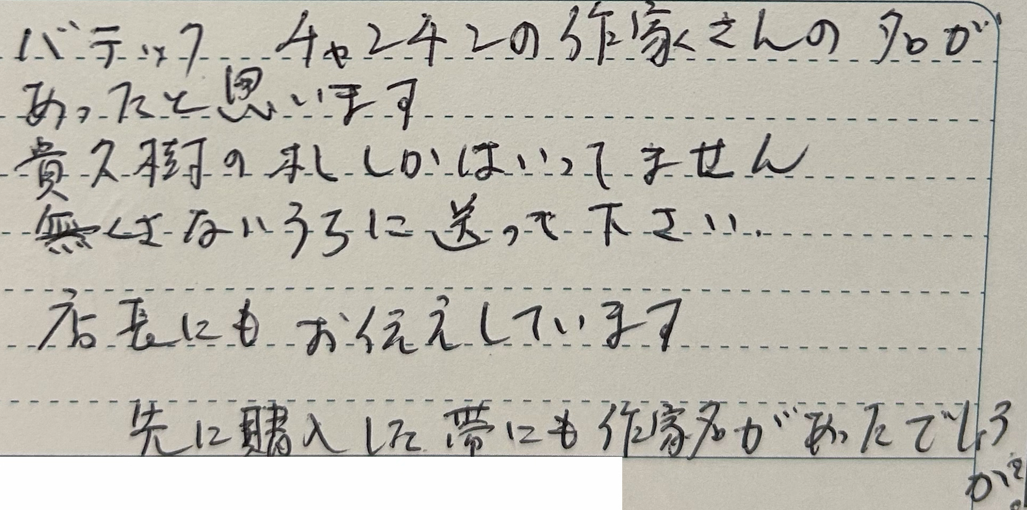 バテック チャンチンの作家さんの名が
あったと思います
貴久樹の札しかはいってません
無くさないうちに送って下さい.
店長にもお伝えしています
先に購入した帯にも作家名があったでしょう
か?